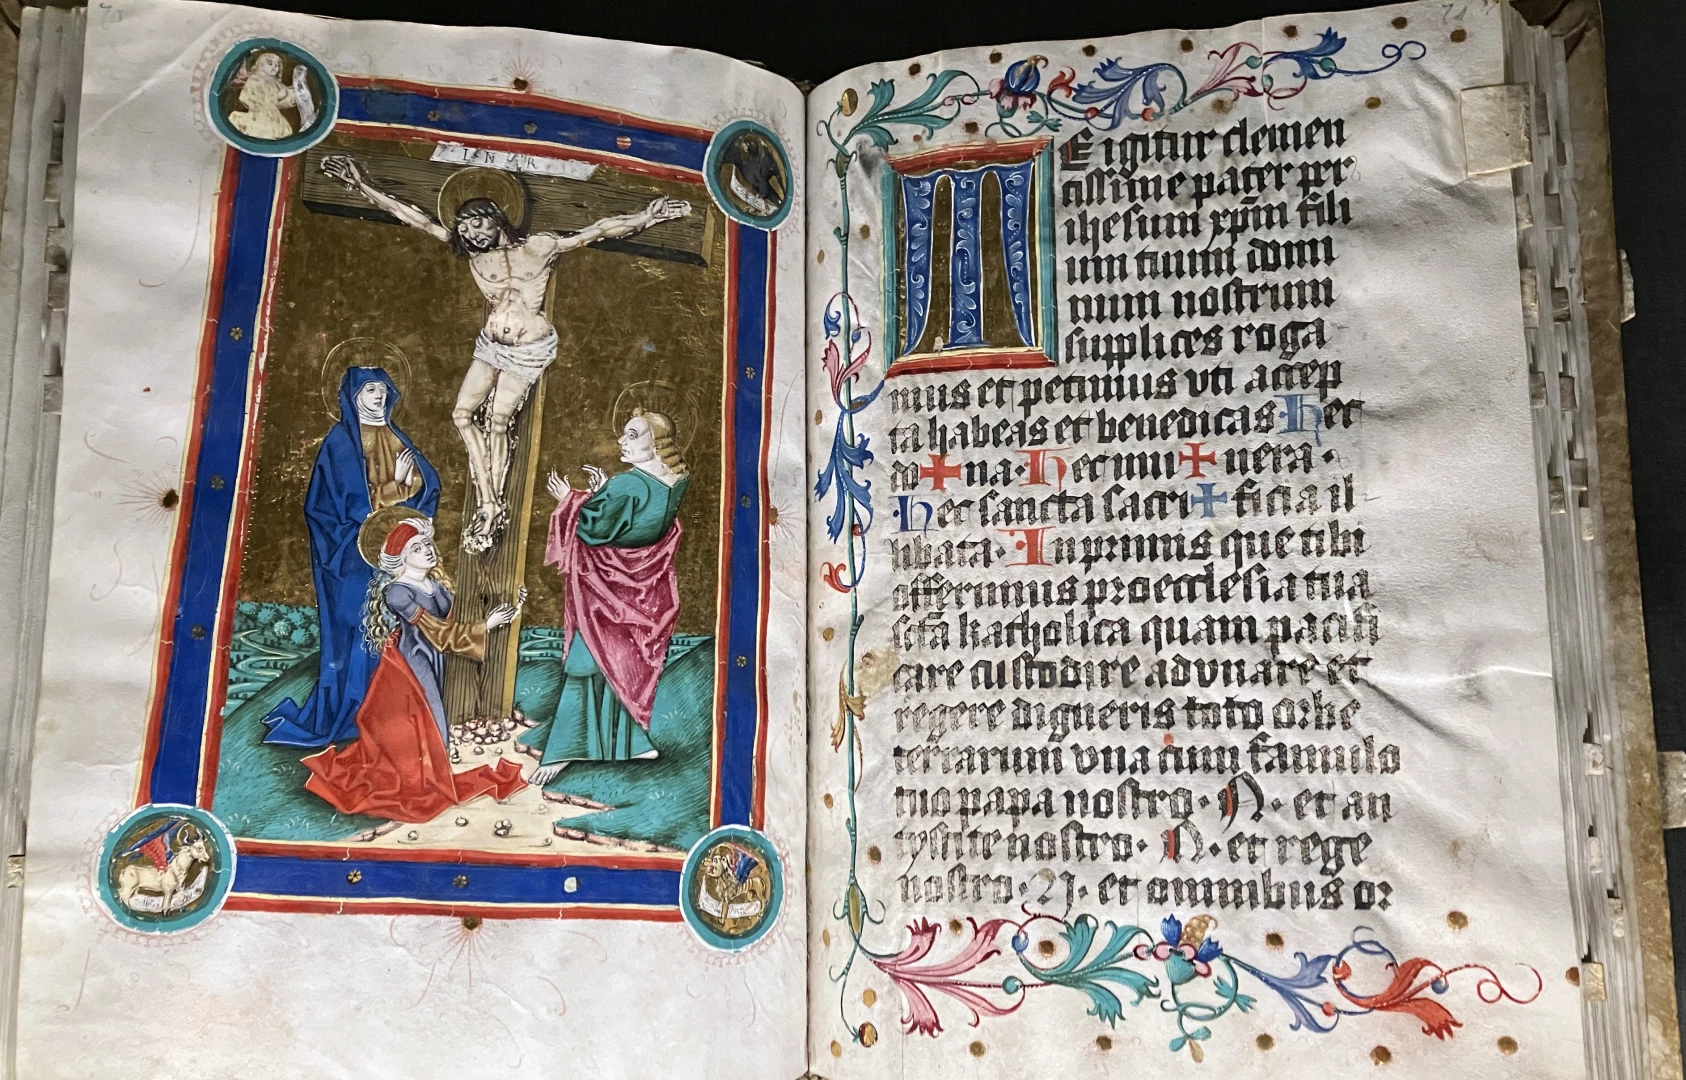 I N R
TE igitur clemen
tissime pater per
ihesum xp̄m fili
um tuum domi
num nostrum
supplices roga
mus et petimus vti accep
ta habeas et benedicas Hec
do + na · Hec mu + nera ·
· Hec sancta sacri + ficia il
libata · In primis que tibi
offerimus pro ecclesia tua
sctā katholica quam pacifi
care custodire advnare et
regere digneris toto orbe
terrarum vna cum famulo
tuo papa nostro · N · et an
tystite nostro · N · et rege
nostro · N · et omnibus or